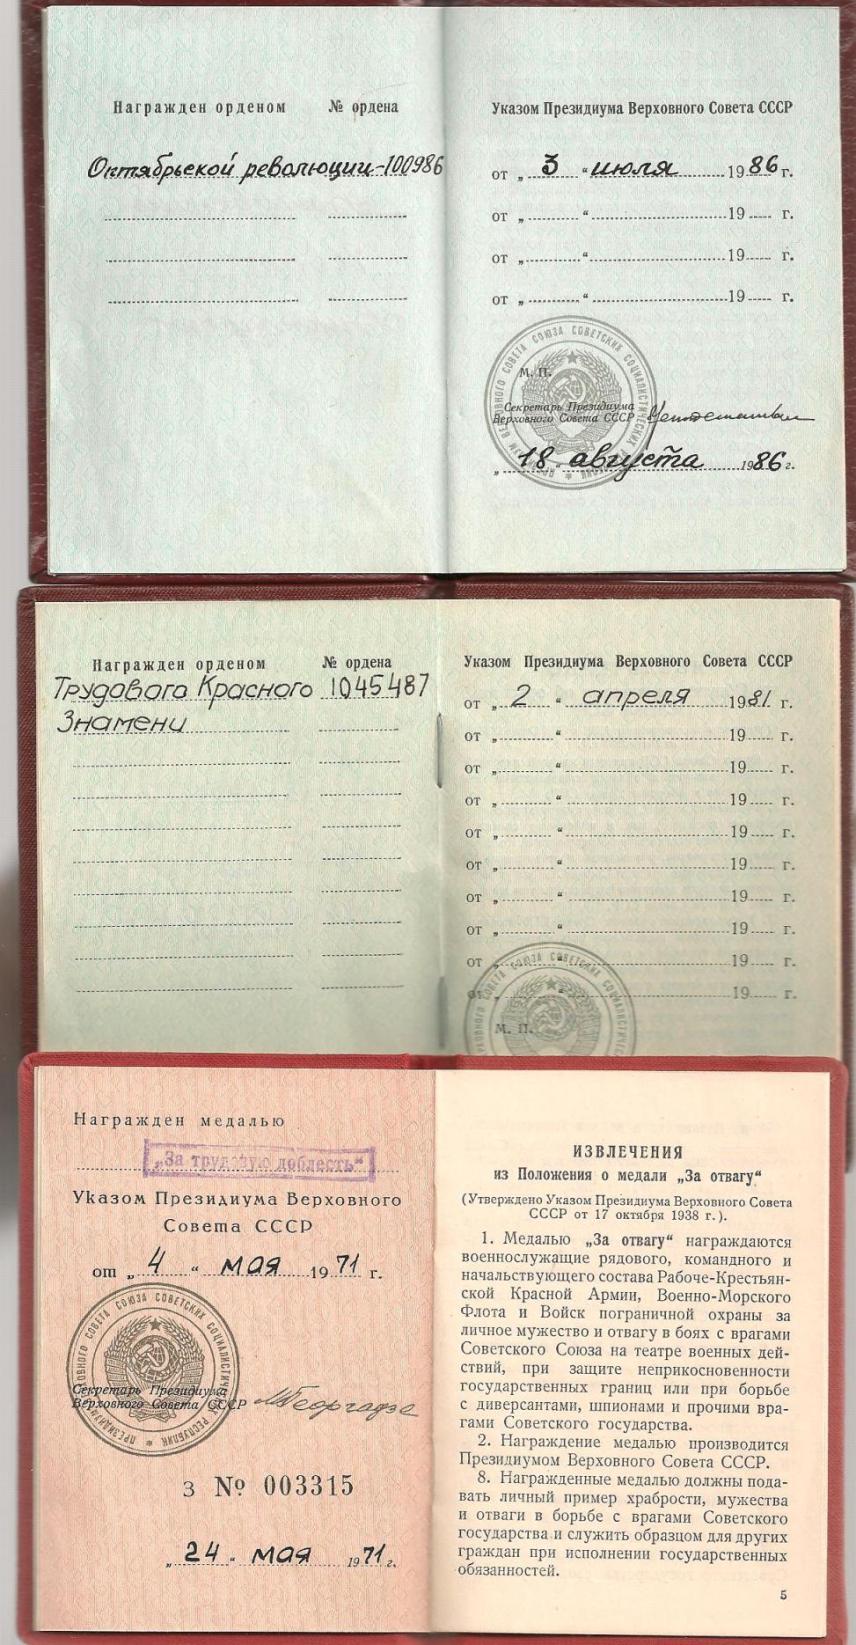 Награжден орденом № ордена
Октябрьской революции-100986
Указом Президиума Верховного Совета СССР
от „ 3 “ июля 1986 г.
от „ “ 19 г.
от „ “ 19 г.
от „ “ 19 г.
М. П.
Секретарь Президиума
Верховного Совета СССР
„ 18 “ августа 1986 г.
Награжден орденом № ордена
Трудового Красного 1045487
Знамени
Указом Президиума Верховного Совета СССР
от „ 2 “ апреля 1981 г.
от „ “ 19 г.
от „ “ 19 г.
от „ “ 19 г.
от „ “ 19 г.
от „ “ 19 г.
от „ “ 19 г.
от „ “ 19 г.
от „ “ 19 г.
от „ “ 19 г.
М. П.
Награжден медалью
„За трудовую доблесть“
Указом Президиума Верховного
Совета СССР
от „ 4 “ мая 1971 г.
Секретарь Президиума
Верховного Совета СССР М Георгадзе
З № 003315
„ 24 “ мая 1971 г.
ИЗВЛЕЧЕНИЯ
из Положения о медали „За отвагу“
(Утверждено Указом Президиума Верховного Совета
СССР от 17 октября 1938 г.).
1. Медалью „За отвагу“ награждаются
военнослужащие рядового, командного и
начальствующего состава Рабоче-Крестьян-
ской Красной Армии, Военно-Морского
Флота и Войск пограничной охраны за
личное мужество и отвагу в боях с врагами
Советского Союза на театре военных дей-
ствий, при защите неприкосновенности
государственных границ или при борьбе
с диверсантами, шпионами и прочими вра-
гами Советского государства.
2. Награждение медалью производится
Президиумом Верховного Совета СССР.
8. Награжденные медалью должны пода-
вать личный пример храбрости, мужества
и отваги в борьбе с врагами Советского
государства и служить образцом для других
граждан при исполнении государственных
обязанностей.
5